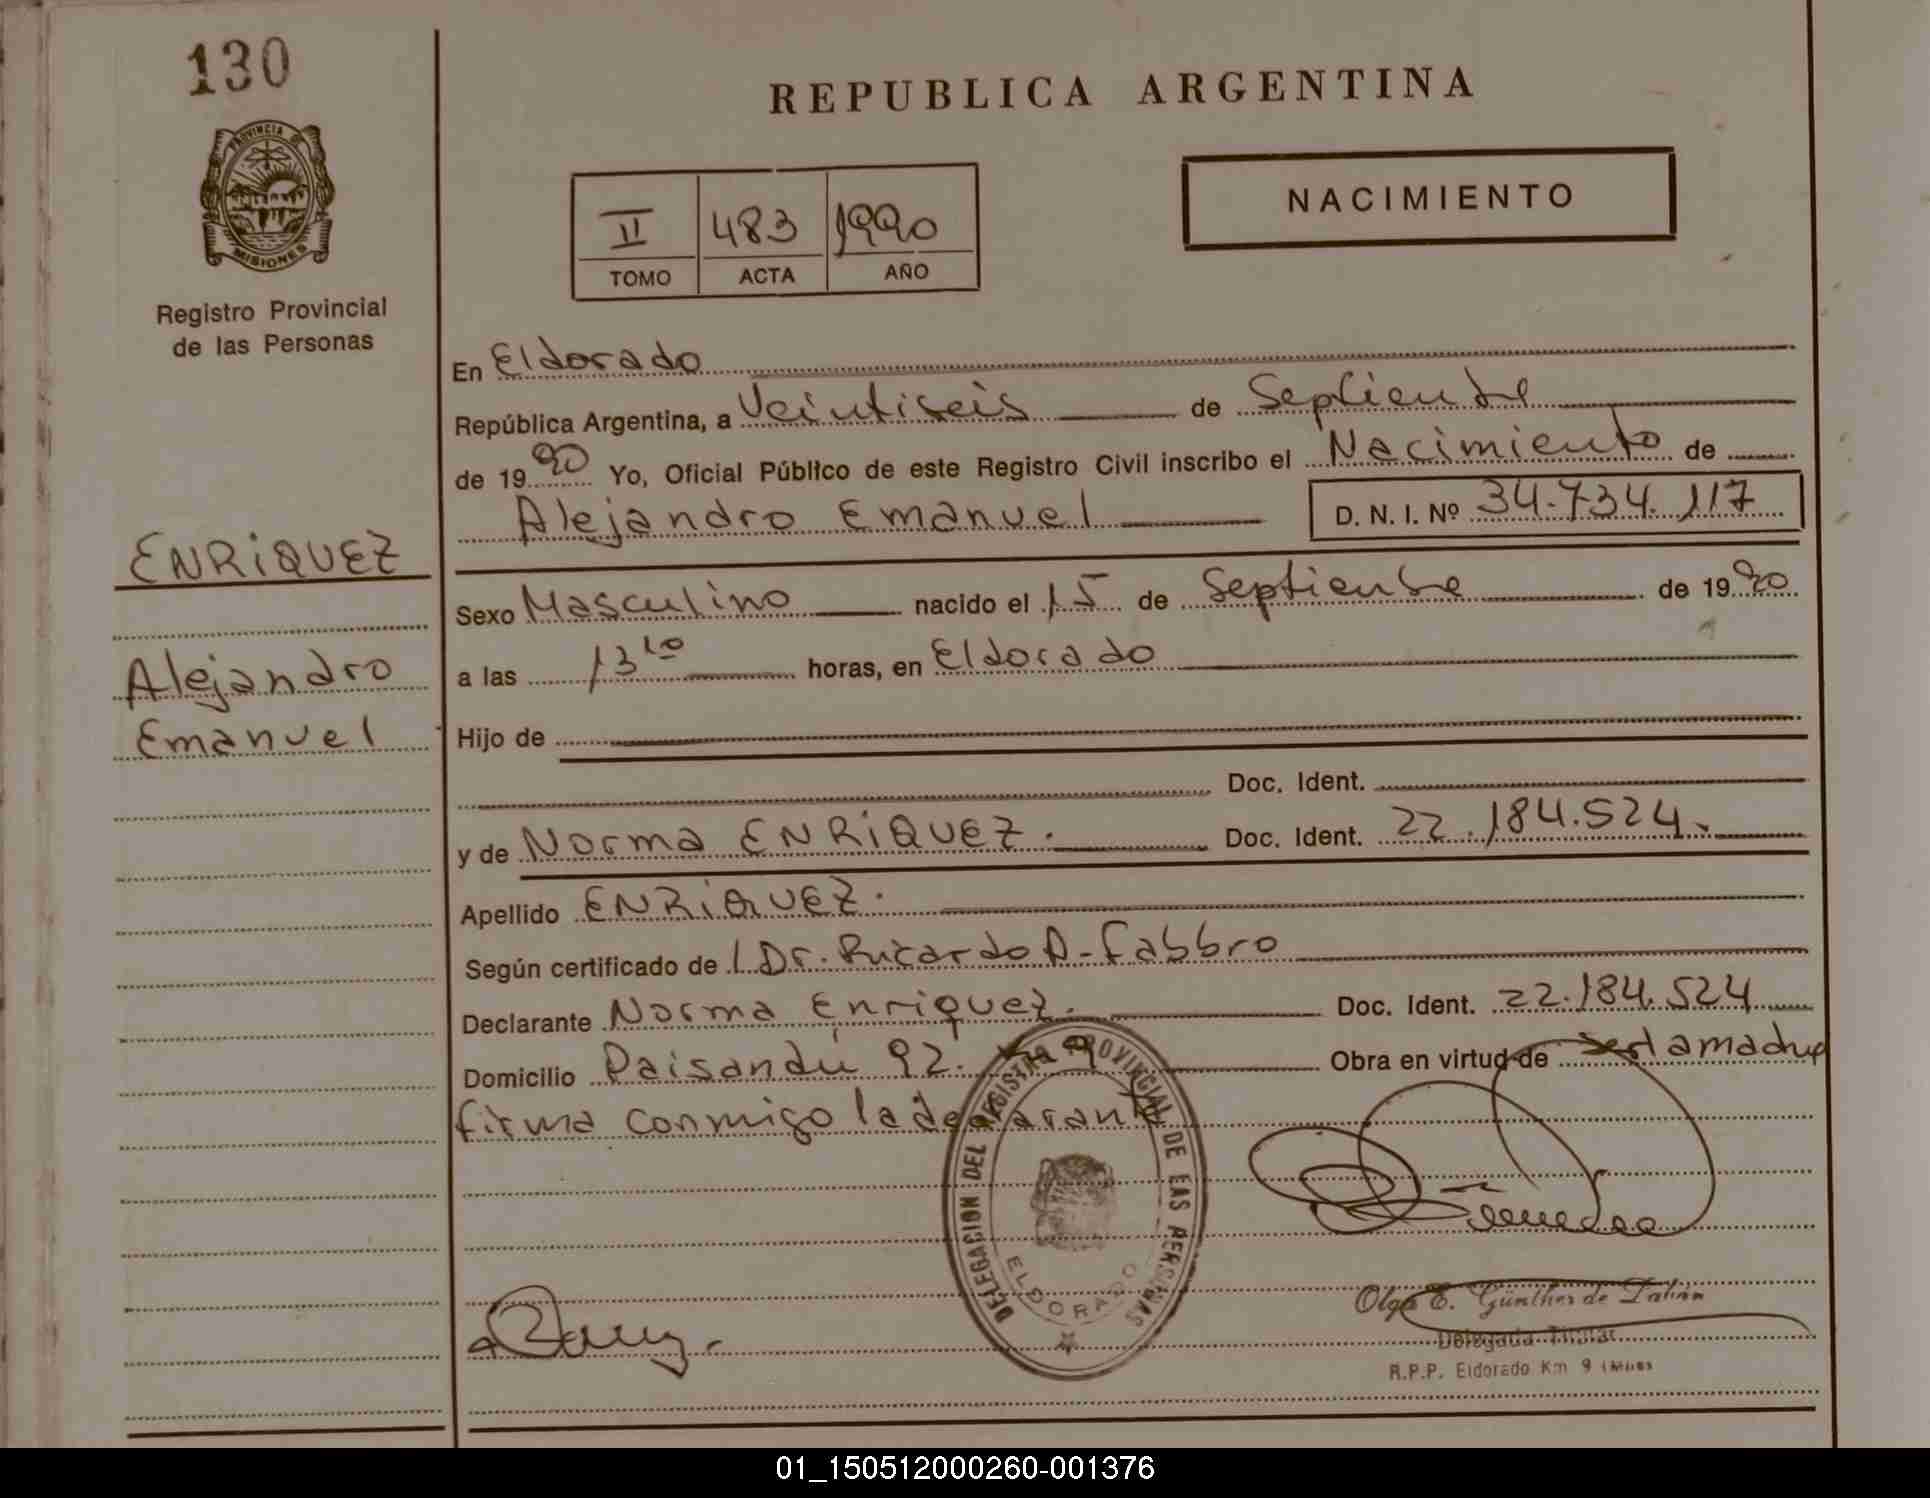 130
REPUBLICA ARGENTINA
PROVINCIA DE
MISIONES
Registro Provincial
de las Personas
II 483 1990
TOMO ACTA AÑO
NACIMIENTO
En Eldorado
República Argentina, a Veintiseis de Septiembre
de 1990 Yo, Oficial Público de este Registro Civil inscribo el Nacimiento de
Alejandro Emanuel D. N. I. Nº 34.734.117
ENRIQUEZ
Alejandro
Emanuel
Sexo Masculino nacido el 15 de Septiembre de 1990
a las 13 10 horas, en Eldorado
Hijo de
Doc. Ident.
y de Norma ENRIQUEZ. Doc. Ident. 22.184.524.
Apellido ENRIQUEZ.
Según certificado de l Dr. Ricardo A. Fabbro
Declarante Norma Enriquez. Doc. Ident. 22.184.524
Domicilio Paisandú 92. Km 9 Obra en virtud de ser la madre
firma conmigo la declarante
DELEGACION DEL REGISTRO PROVINCIAL DE LAS PERSONAS
ELDORADO
Olga E. Günther de
Delegada Titular
R.P.P. Eldorado Km 9
01_150512000260-001376